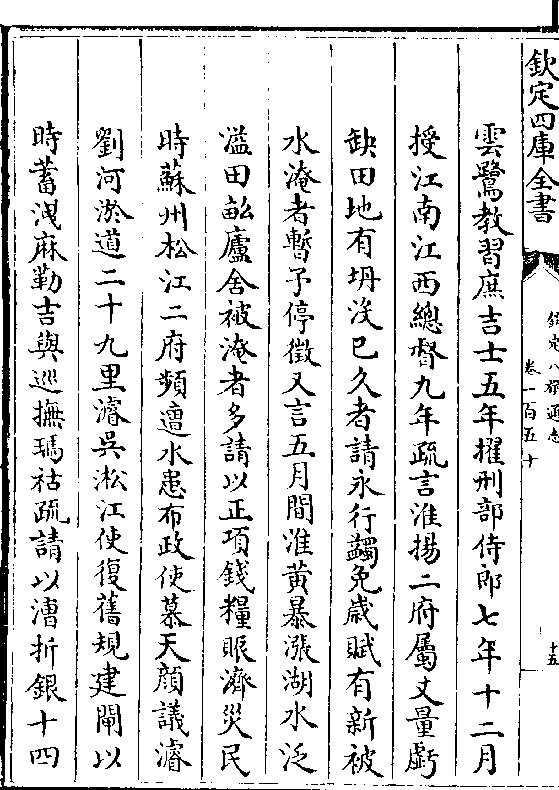 欽定四庫全書
欽定八旗通志
卷一百五十
十五
雲鷺教習庶吉士五年擢刑部侍郎七年十二月
授江南江西總督九年疏言淮揚二府屬丈量虧
缺田地有坍没已久者請永行蠲免歲賦有新被
水淹者暫予停徵又言五月間淮黄暴漲湖水泛
溢田畝廬舍被淹者多請以正項錢糧賑濟災民
時蘇州松江二府頻遭水患布政使慕天顔議濬
劉河淤道二十九里濬吳淞江使復舊規建閘以
時蓄洩麻勒吉與巡撫瑪祜疏請以漕折銀十四